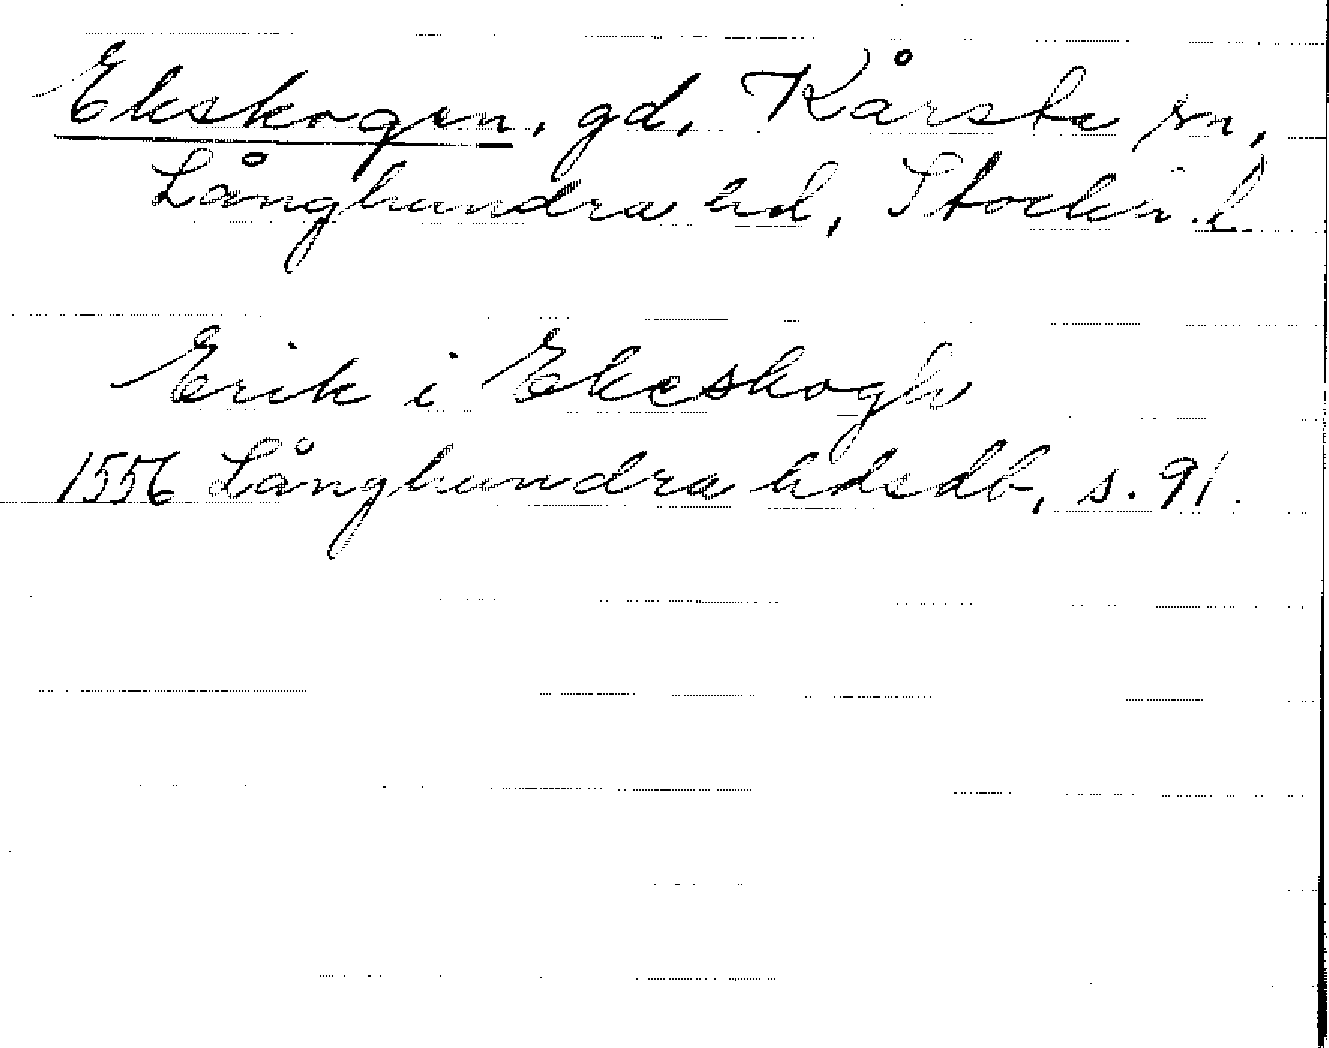 Ekskogen, gd, Kårsta sn,
Långhundra hd, Stockh. l
Erik i Ekeskogh
1556 Långhundra hdsdb, s. 91.